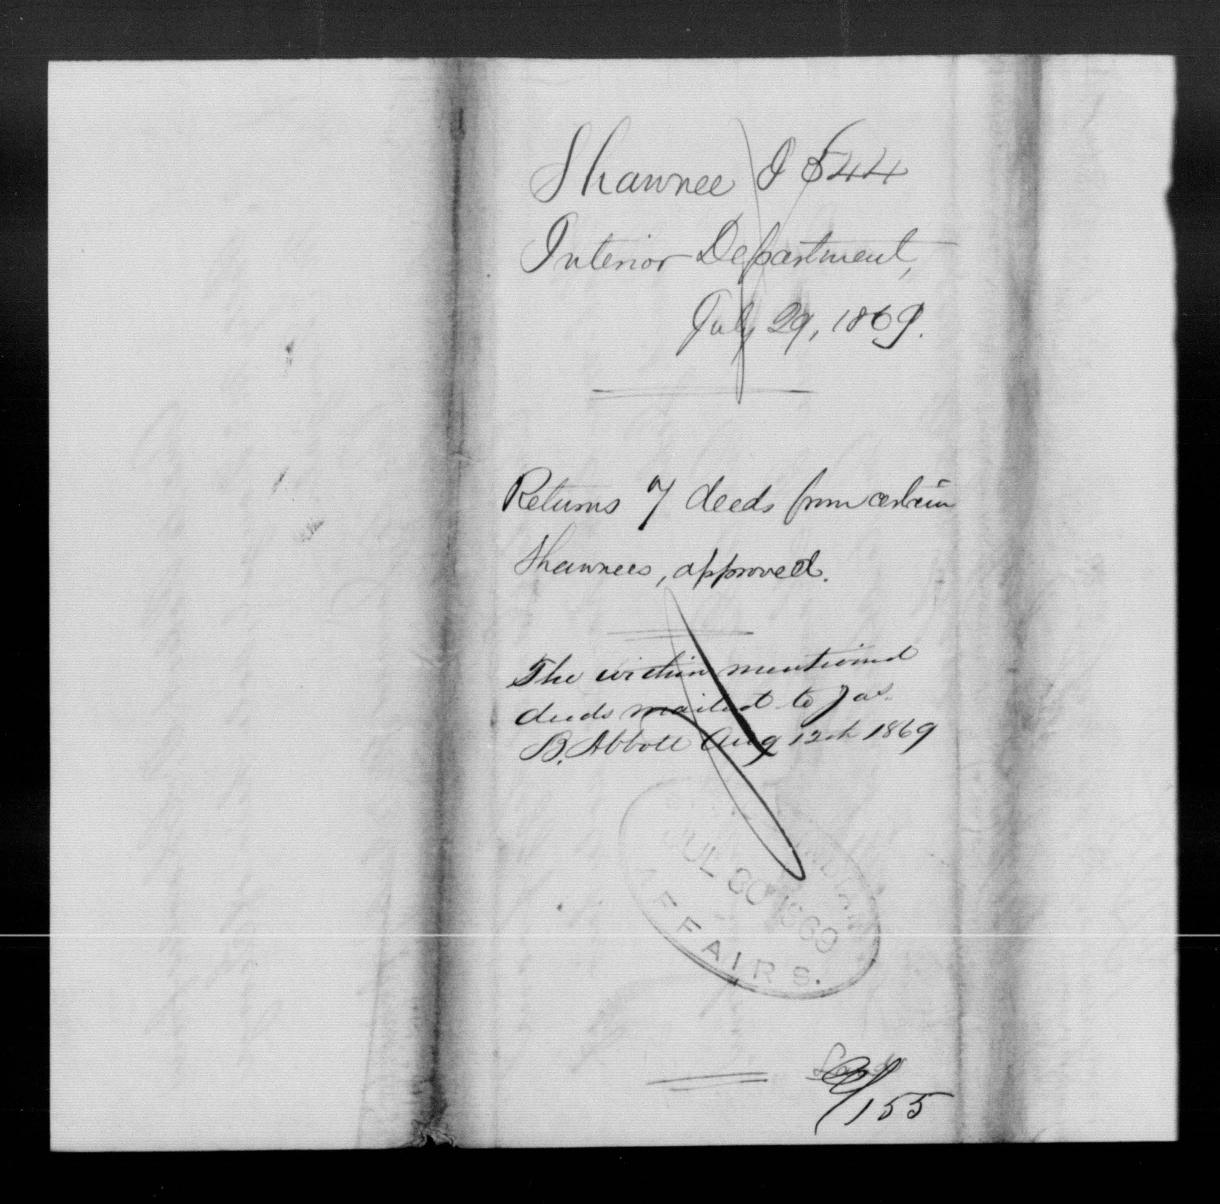 Shawnee I 544
Interior Department,
July 29, 1869.
Returns 7 deeds from certain
Shawnees, approved.
The within mentioned
deeds mailed to Jas.
B. Abbott Aug 12th 1869
INDIAN
JUL 30 1869
AFFAIRS.
Land
9/155